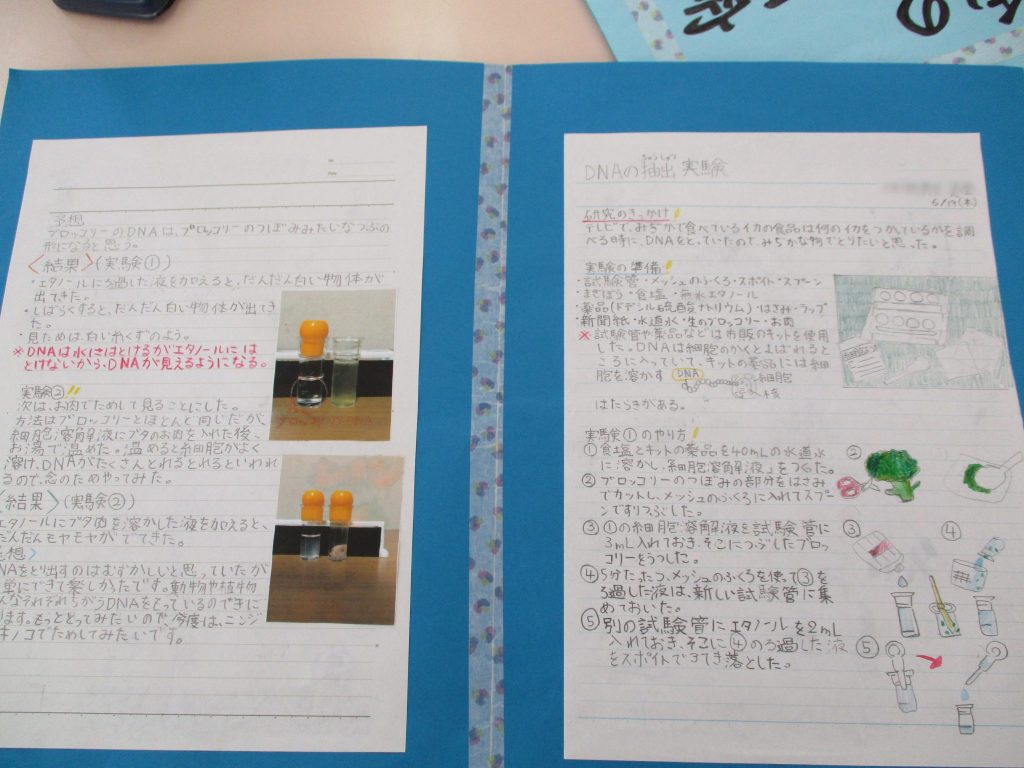 DNAの抽出実験
ちゅうしゅつ
6/19(木)
研究のきっかけ
テレビで、みぢかで食べているイカの食品は何のイカをつかっているかを調
べる時に、DNAをとっていたので、みぢかな物でとりたいと思った。
実験の準備
・試験管・メッシュのふくろ・スポイト・スプーン
まぜぼう・食塩・無水エタノール
・薬品(ドデシル硫酸ナトリウム)・はさみ・ラップ
新聞紙・水道水・生のブロッコリー・お肉
※試験管や薬品などは市販のキットを使用
した。DNAは細胞のかくとよばれると
ころに入っていて、キットの薬品には細
胞を溶かす
DNA
細胞
核
はたらきがある。
実験①のやり方
①食塩とキットの薬品を40mLの水道水
に溶かし「細胞溶解液」をつくった。
②ブロッコリーのつぼみの部分をはさみ
でカットし、メッシュのふくろに入れてスプー
ンですりつぶした。
③①の細胞溶解液を試験管に
3mL入れておき、そこにつぶしたブロッ
コリーをうつした。
④5分たったら、メッシュのふくろを使って③を
ろ過した液は、新しい試験管に集
めておいた。
⑤別の試験管にエタノールを2mL
入れておき、そこに④のろ過した液
をスポイトで3てき落とした。
②
③
④
⑤
予想
ブロッコリーのDNAは、ブロッコリーのつぼみみたいなつぶの
形になると思う。
〈結果〉(実験①)
・エタノールにろ過した液を加えると、だんだん白い物体が
出てきた。
・しばらくすると、だんだん白い物体が出てき
た。
・見ためは白い糸くずのよう。
※DNAは水にはとけるがエタノールには
とけないから、DNAが見えるようになる。
実験②
次は、お肉でためして見ることにした。
方法はブロッコリーとほとんど同じだが、
細胞溶解液にブタのお肉を入れた後、
お湯で温めた。温めると細胞がよく
溶け、DNAがたくさんとれるとれるといわれ
るので、念のためやってみた。
〈結果〉(実験②)
エタノールにブタ肉を溶かした液を加えると、
だんだんモヤモヤがでてきた。
NAをとり出すのはむずかしいと思っていたが
単にできて楽しかったです。動物や植物
んなそれぞれちがうDNAをもっているのできに
ります。もっととってみたいので、今度は、ニンジ
キノコでためしてみたいです。